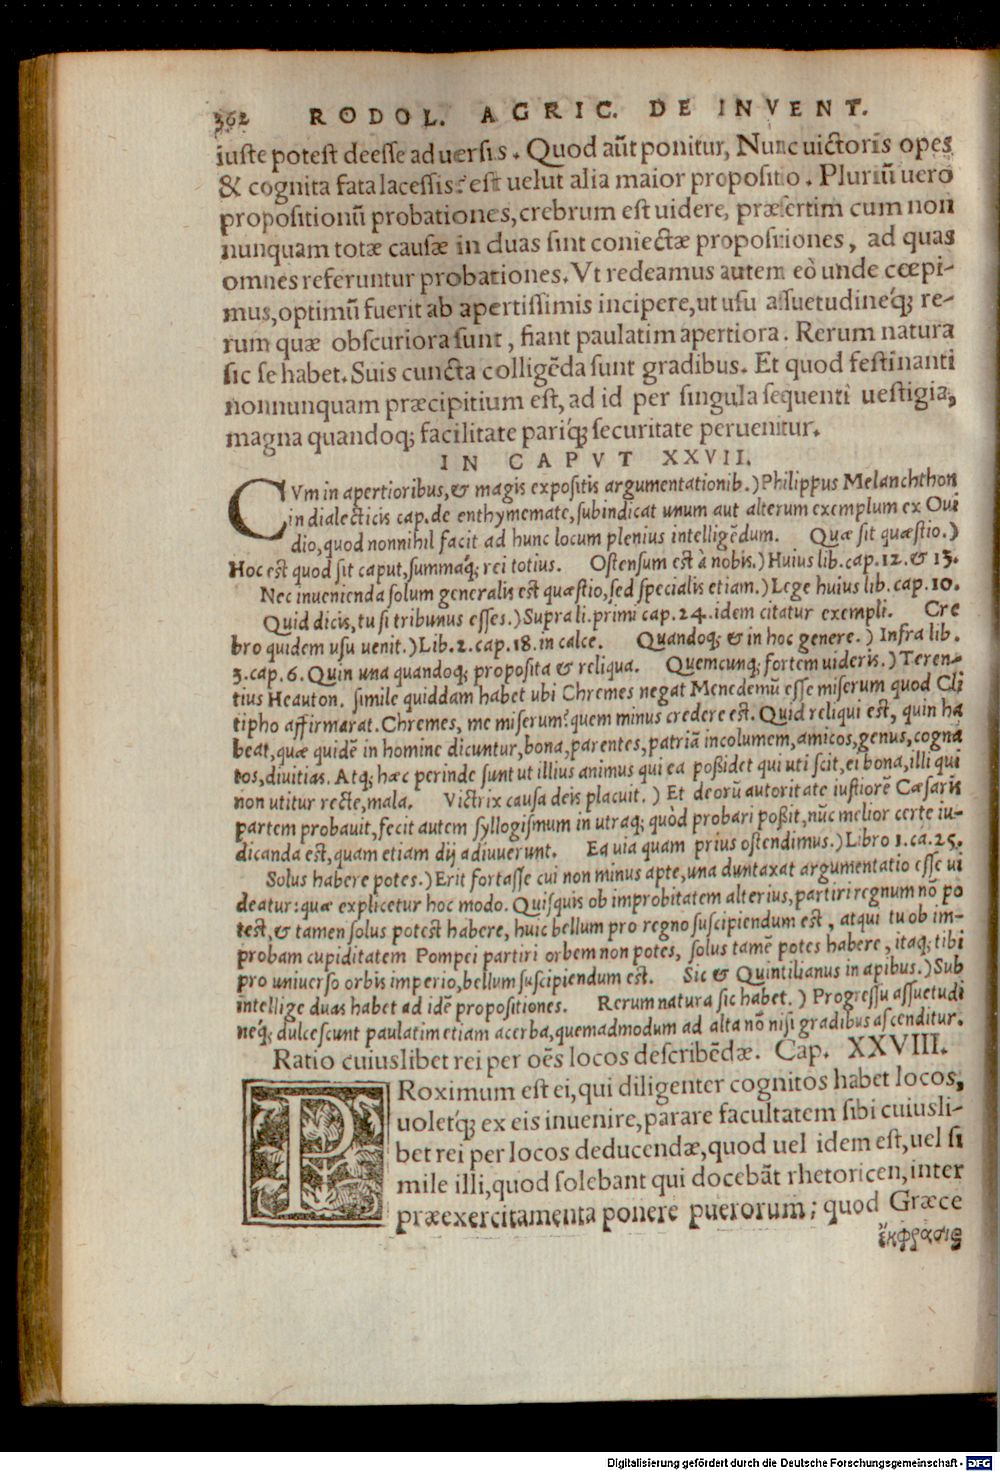 362 RODOL. AGRIC. DE INVENT.
iuste potest deesse aduersis. Quod aūt ponitur, Nunc uictoris opes
& cognita fata lacessis? est uelut alia maior propositio. Pluriū uero
propositionū probationes, crebrum est uidere, præsertim cum non
nunquam totæ causæ in duas sint coniectæ propositiones, ad quas
omnes referuntur probationes. Vt redeamus autem eò unde cœpi-
mus, optimū fuerit ab apertissimis incipere, ut usu assuetudineq́; re-
rum quæ obscuriora sunt, fiant paulatim apertiora. Rerum natura
sic se habet. Suis cuncta colligēda sunt gradibus. Et quod festinanti
nonnunquam præcipitium est, ad id per singula sequenti uestigia,
magna quandoq; facilitate pariq́; securitate peruenitur.
IN CAPVT XXVII.
CVm in apertioribus, & magis expositis argumentationib.) Philippus Melanchthon
in dialecticis cap. de enthymemate, subindicat unum aut alterum exemplum ex Oui
dio, quod nonnihil facit ad hunc locum plenius intelligēdum. Quæ sit quæstio.)
Hoc est quod sit caput, summaq́; rei totius. Ostensum est à nobis.) Huius lib. cap. 12. & 13.
Nec inuenienda solum generalis est quæstio, sed specialis etiam.) Lege huius lib. cap. 10.
Quid dicis, tu si tribunus esses.) Supra li. primi cap. 24. idem citatur exempli. Cre
bro quidem usu uenit.) Lib. 2. cap. 18. in calce. Quandoq; & in hoc genere.) Infra lib.
3. cap. 6. Quin una quandoq; proposita & reliqua. Quemcunq; fortem uideris.) Teren-
tius Heauton. simile quiddam habet ubi Chremes negat Menedemū esse miserum quod Cli
tipho affirmarat. Chremes, me miserum? quem minus credere est. Quid reliqui est, quin ha
beat, quæ quidē in homine dicuntur, bona, parentes, patriā incolumem, amicos, genus, cogna
tos, diuitias. Atq; hæc perinde sunt ut illius animus qui ea poßidet qui uti scit, ei bona, illi qui
non utitur recte, mala. Victrix causa deis placuit.) Et deorū autoritate iustiorē Cæsaris
partem probauit, fecit autem syllogismum in utraq; quòd probari poßit, nūc melior certe iu-
dicanda est, quam etiam dij adiuuerunt. Ea uia quam prius ostendimus.) Libro 1. ca. 25.
Solus habere potes.) Erit fortasse cui non minus apte, una duntaxat argumentatio esse ui
deatur: quæ explicetur hoc modo. Quisquis ob improbitatem alterius, partiri regnum nō po
test, & tamen solus potest habere, huic bellum pro regno suscipiendum est, atqui tu ob im-
probam cupiditatem Pompei partiri orbem non potes, solus tamē potes habere, itaq; tibi
pro uniuerso orbis imperio, bellum suscipiendum est. Sic & Quintilianus in apibus.) Sub
intellige duas habet ad idē propositiones. Rerum natura sic habet.) Progressu assuetudi
neq; dulcescunt paulatim etiam acerba, quemadmodum ad alta nō nisi gradibus ascenditur.
Ratio cuiuslibet rei per oēs locos describēdæ. Cap. XXVIII.
PRoximum est ei, qui diligenter cognitos habet locos,
uoletq́; ex eis inuenire, parare facultatem sibi cuiusli-
bet rei per locos deducendæ, quod uel idem est, uel si
mile illi, quod solebant qui docebāt rhetoricen, inter
præexercitamenta ponere puerorum; quod Græce
ἔκφρασις
Digitalisierung gefördert durch die Deutsche Forschungsgemeinschaft - DFG